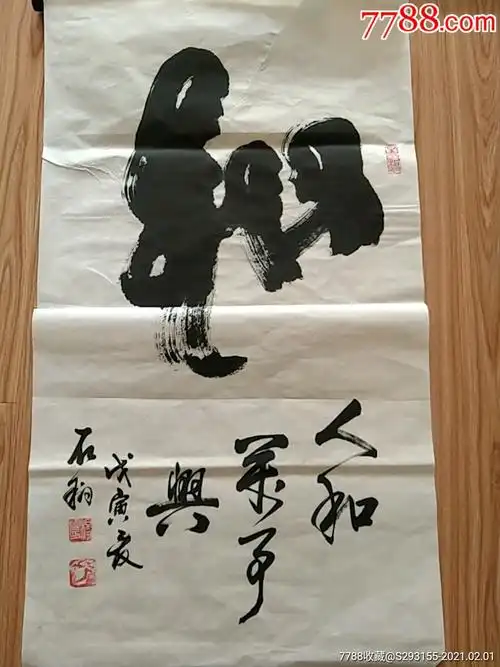 7788.com
和
人和
萬事
興
戊寅夏
石翔
7788收藏@S293155-2021.02.01